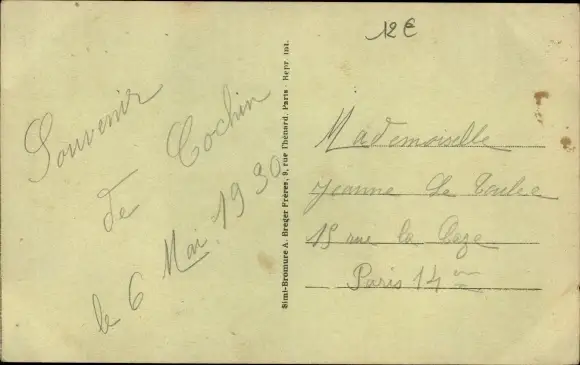 Souvenir
de Cochin
le 6 Mai 1930
Simi-Bromure A. Breger Frères, 9, rue Thénard, Paris - Repr. int.
12€
Mademoiselle
Jeanne Le
15 rue la
Paris 14 em